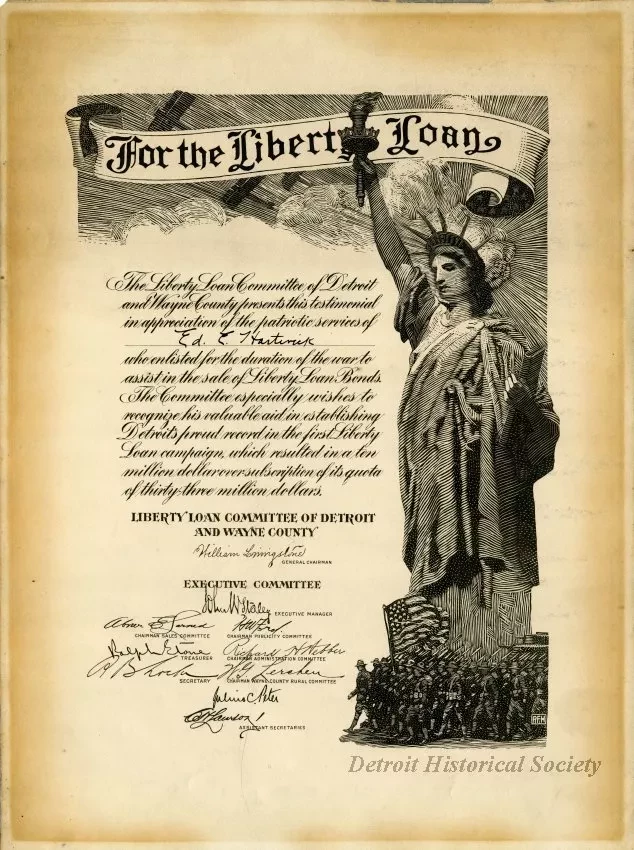 For the Liberty Loan
The Liberty Loan Committee of Detroit
and Wayne County presents this testimonial
in appreciation of the patriotic services of
Ed. E. Hartwick
who enlisted for the duration of the war to
assist in the sale of Liberty Loan Bonds.
The Committee especially wishes to
recognize his valuable aid in establishing
Detroit's proud record in the first Liberty
Loan campaign, which resulted in a ten
million dollar oversubscription of its quota
of thirty-three million dollars.
LIBERTY LOAN COMMITTEE OF DETROIT
AND WAYNE COUNTY
William Livingstone
GENERAL CHAIRMAN
EXECUTIVE COMMITTEE
John W. Staley
EXECUTIVE MANAGER
CHAIRMAN SALES COMMITTEE
CHAIRMAN PUBLICITY COMMITTEE
Ralph Stone
TREASURER
Richard H Webber
CHAIRMAN ADMINISTRATION COMMITTEE
SECRETARY
CHAIRMAN WAYNE COUNTY RURAL COMMITTEE
Julius C. Peter
ASSISTANT SECRETARIES
Detroit Historical Society